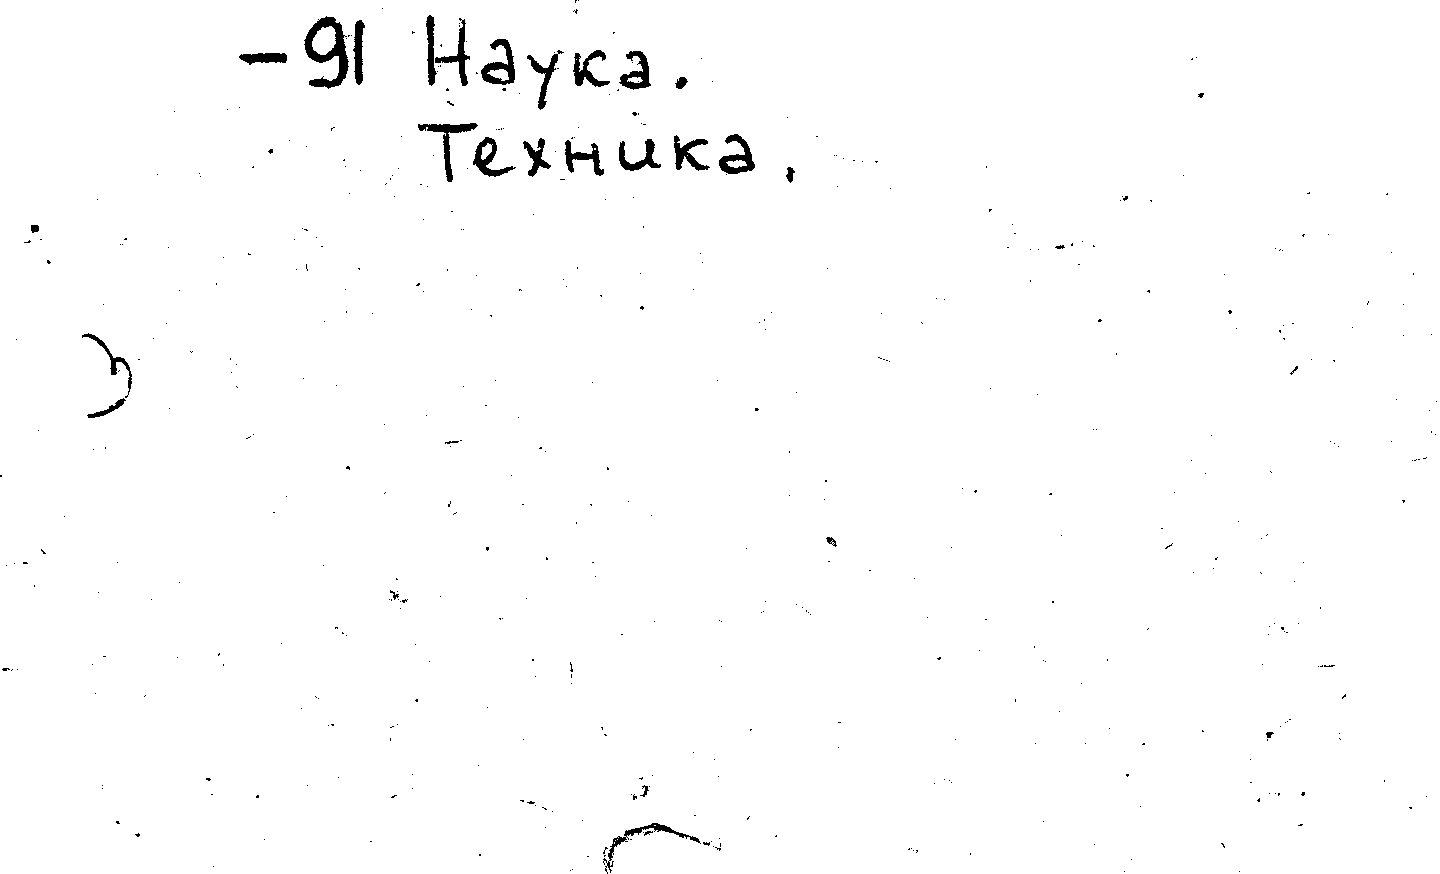 -91 Наука.
Техника.